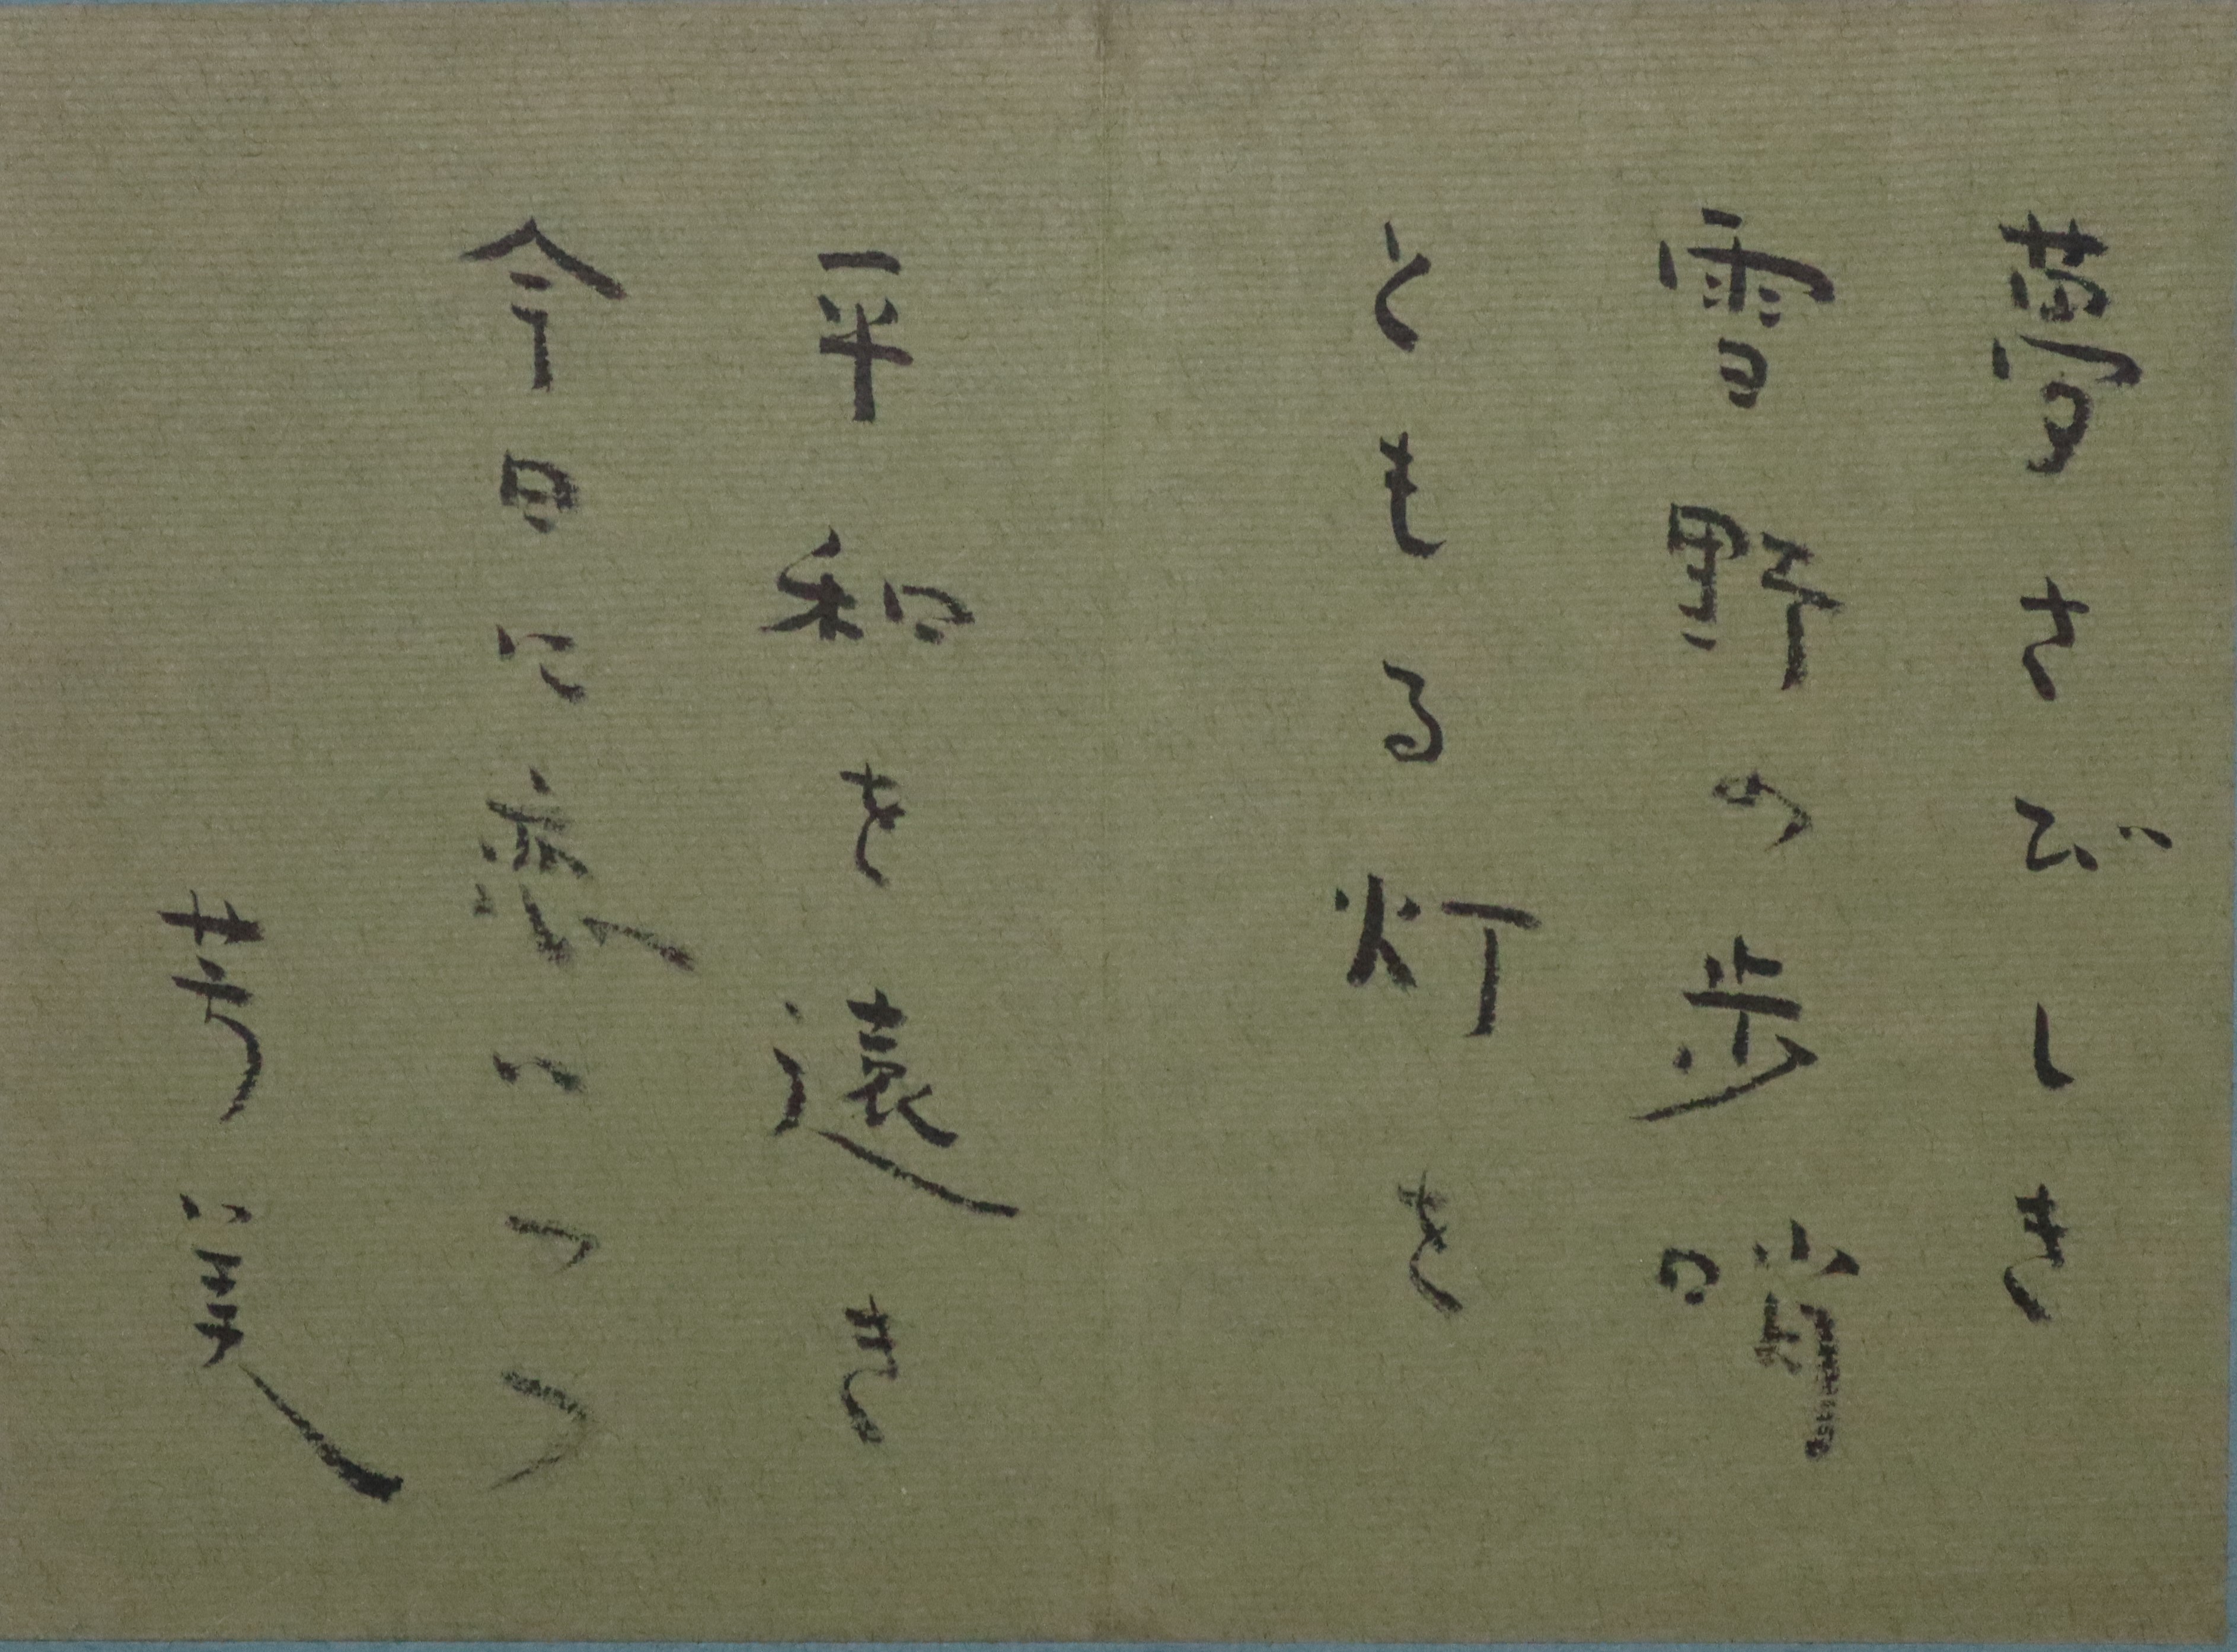 夢さびしき
雪野の歩哨
ともる灯を
平和を遠き
今日に恋いつつ
芳美